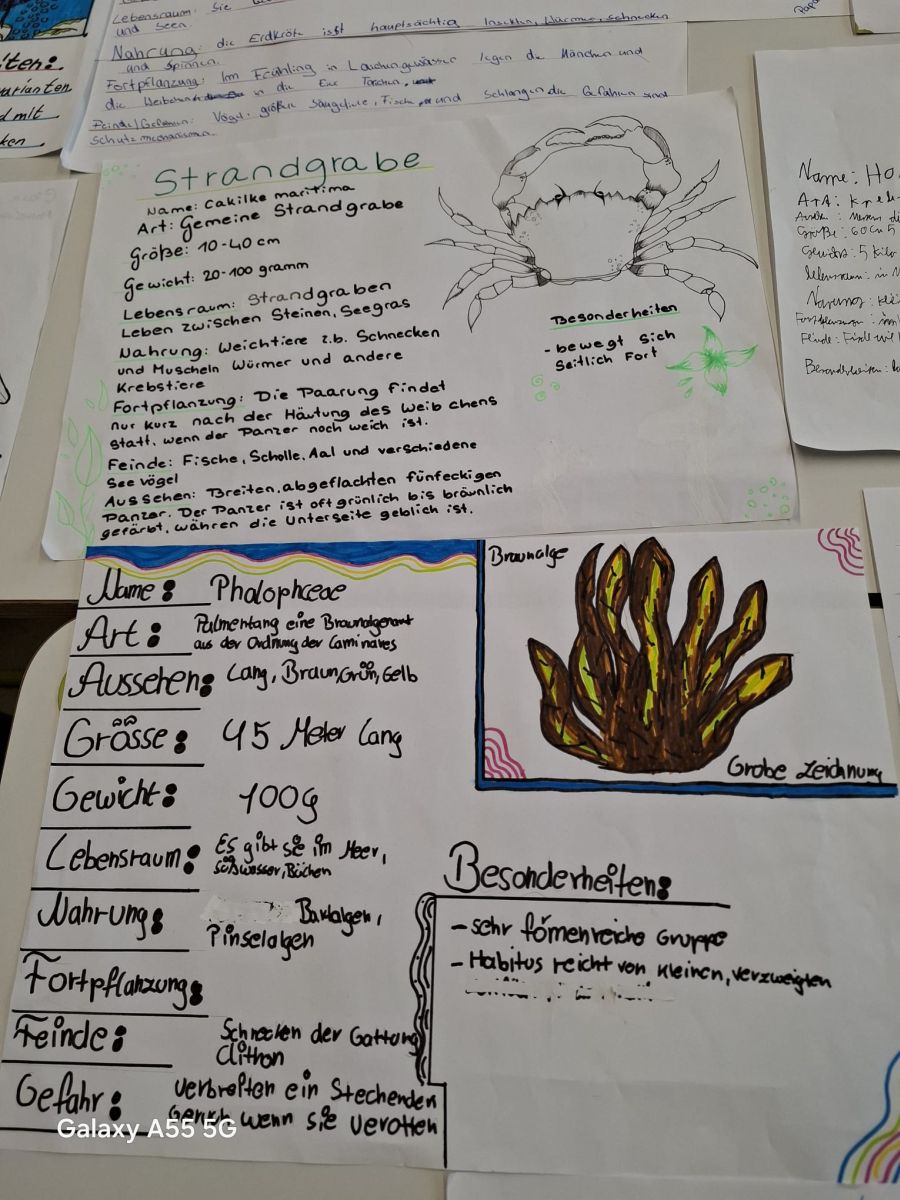 iten:
varianten
d mit
ken.
Lebensraum: Sie
und Seen.
Nahrung: die Erdkröte isst hauptsächtig Insekten, Würmer, schnecken
und Spinnen.
Fortpflanzung: Im Frühling in legen die Mänchen und
die in die Eier
Feinde/Gefahren: Vögel, größere Säugetiere, Fische, und Schlangen die Gefahren sind
Schutzmechanismen.
Strandgrabe
Name: Cakilke maritima
Art: Gemeine Strandgrabe
Größe: 10-40 cm
Gewicht: 20-100 gramm
Lebensraum: Strandgraben
Leben zwischen Steinen, Seegras
Nahrung: Weichtiere z.b. Schnecken
und Muscheln Würmer und andere
Krebstiere
Fortpflanzung: Die Paarung findet
nur kurz nach der Häutung des Weib chens
statt, wenn der Panzer noch weich ist.
Feinde: Fische, Scholle, Aal und verschiedene
See vögel
Aussehen: Breiten, abgeflachten fünfeckigen
Panzer. Der Panzer ist oft grünlich bis bräunlich
gefärbt, währen die Unterseite geblich ist.
Besonderheiten
- bewegt sich
Seitlich Fort
Name: Ho
Art: Kreb
Größe: 60cm
Gewicht: 5 Kilo
Lebensraum: in
Nahrung:
Fortpflanzung:
Feinde:
Besonderheiten:
Name: Phalophceae
Art: Palmentang eine Braunalgenart
aus der Ordnung der Laminares
Aussehen: Lang, Braun, Grün, Gelb
Grösse: 45 Meter Lang
Gewicht: 100g
Lebensraum: Es gibt sie im Meer,
süßwasser, Bächen
Nahrung: Baxlalgen,
Pinselalgen
Fortpflanzung:
Feinde: Schnecken der Gattung
Clithon
Gefahr: verbreiten ein Stechenden
Geruch wenn sie verotten
Braunalge
Grobe Zeichnung
Besonderheiten:
- sehr förmenreiche Gruppe
- Habitus reicht von kleinen, verzweigten
Galaxy A55 5G